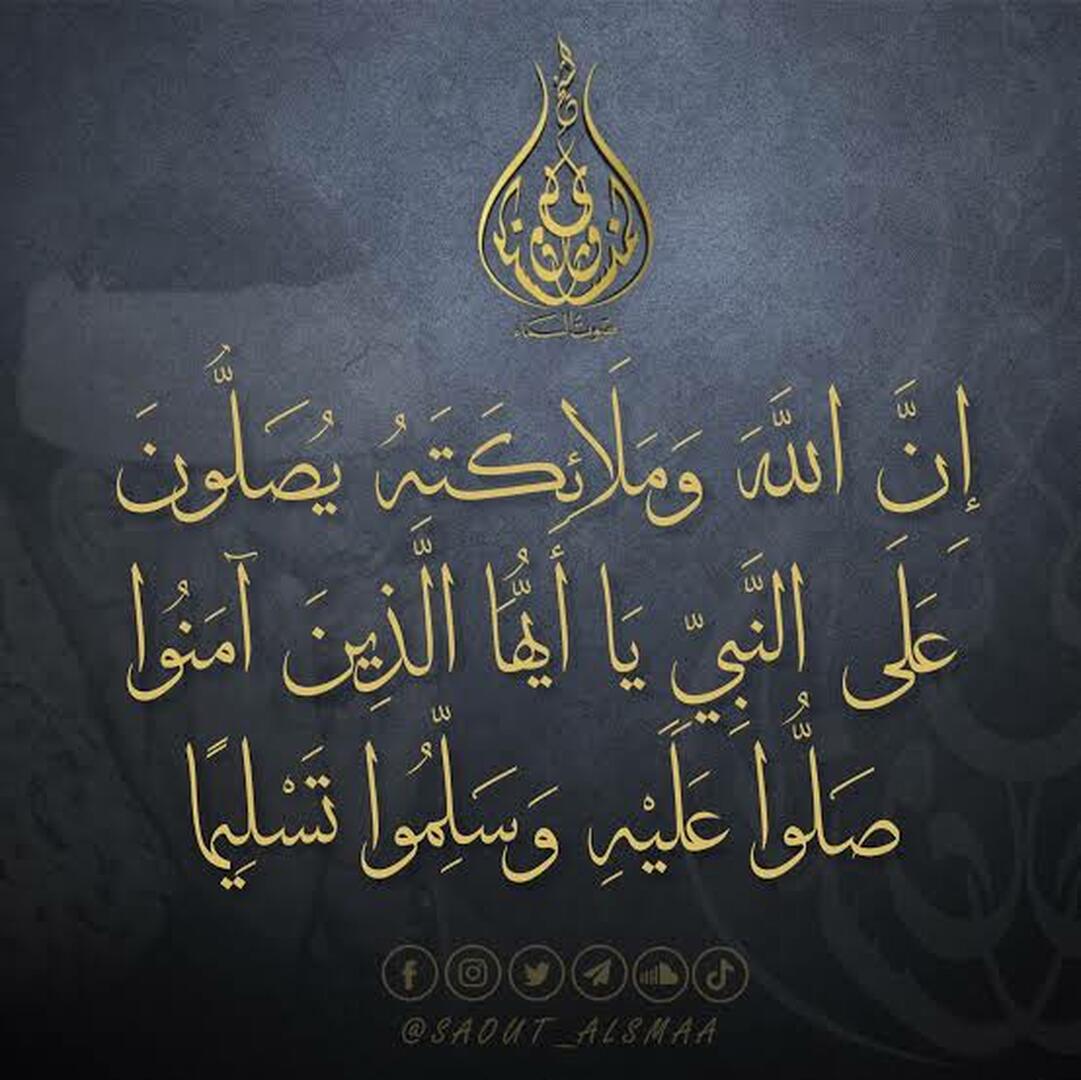 صوت السماء
إِنَّ اللَّهَ وَمَلَائِكَتَهُ يُصَلُّونَ
عَلَى النَّبِيِّ يَا أَيُّهَا الَّذِينَ آمَنُوا
صَلُّوا عَلَيْهِ وَسَلِّمُوا تَسْلِيمًا
@SAOUT_ALSMAA